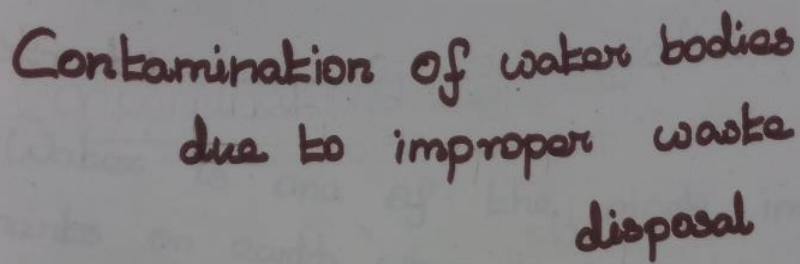 Contamination of water bodies
due to improper waste
disposal